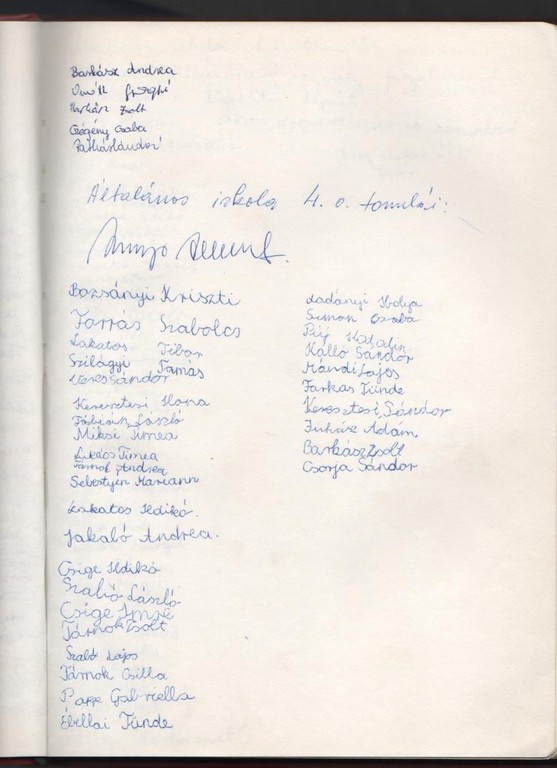 Barkász Andrea
Onóth
Zsolt
Gégény Csaba
Általános iskola 4. o. tanulói:
Bozsányi Kriszti
Forrás Szabolcs
Lakatos Tibor
Szilágyi Tamás
Veres Sándor
Keresztesi Ilona
Fábián László
Miksi Timea
Lukács Timea
Tárnok Andrea
Sebestyén Mariann
Lakatos Ildikó.
Jakaló Andrea.
Csige Ildikó
Szabó László
Csige Imre
Tárnok Zsolt
Szabó Lajos
Tárnok Csilla
Papp Gabriella
Tünde
Ladányi Ibolya
Simon Csaba
Katalin
Kalló Sándor
Mándi Lajos
Farkas Tünde
Keresztesi Sándor
Juhász Ádám
Barkász Zsolt
Csorja Sándor